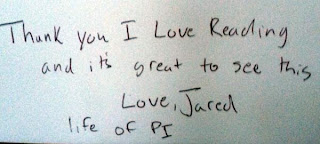 Thank you I Love Reading
and it's great to see this
Love, Jared
life of PI